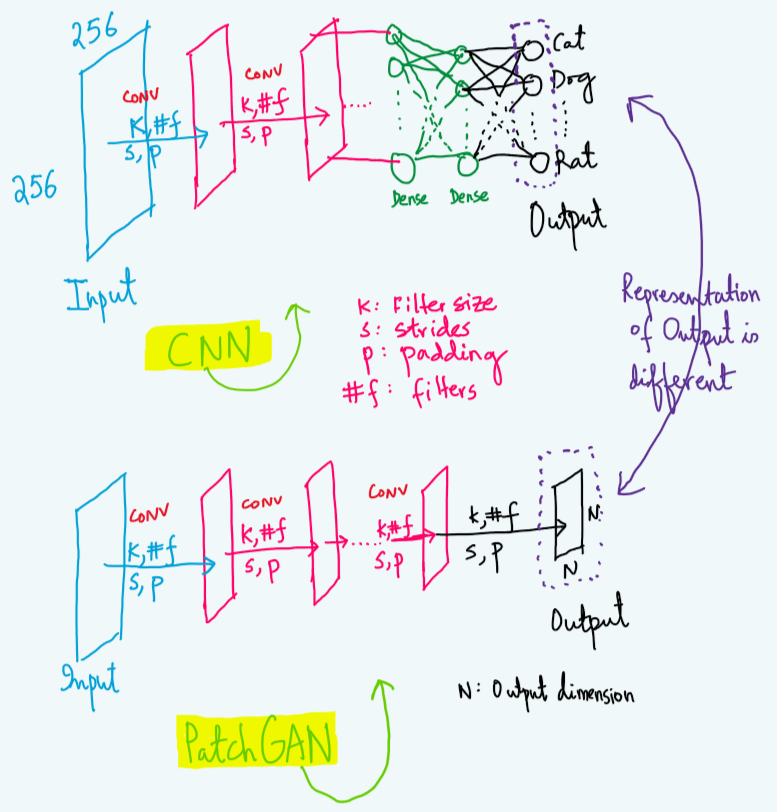 256
256
CONV
K,#f
s,p
CONV
K,#f
s,p
Cat
Dog
Rat
Dense
Dense
Output
Input
CNN
K: Filter size
s: strides
p: padding
#f: filters
Representation
of Output is
different
CONV
K,#f
s,p
CONV
K,#f
s,p
CONV
K,#f
s,p
K,#f
s,p
N
N
Output
Input
N: Output dimension
PatchGAN